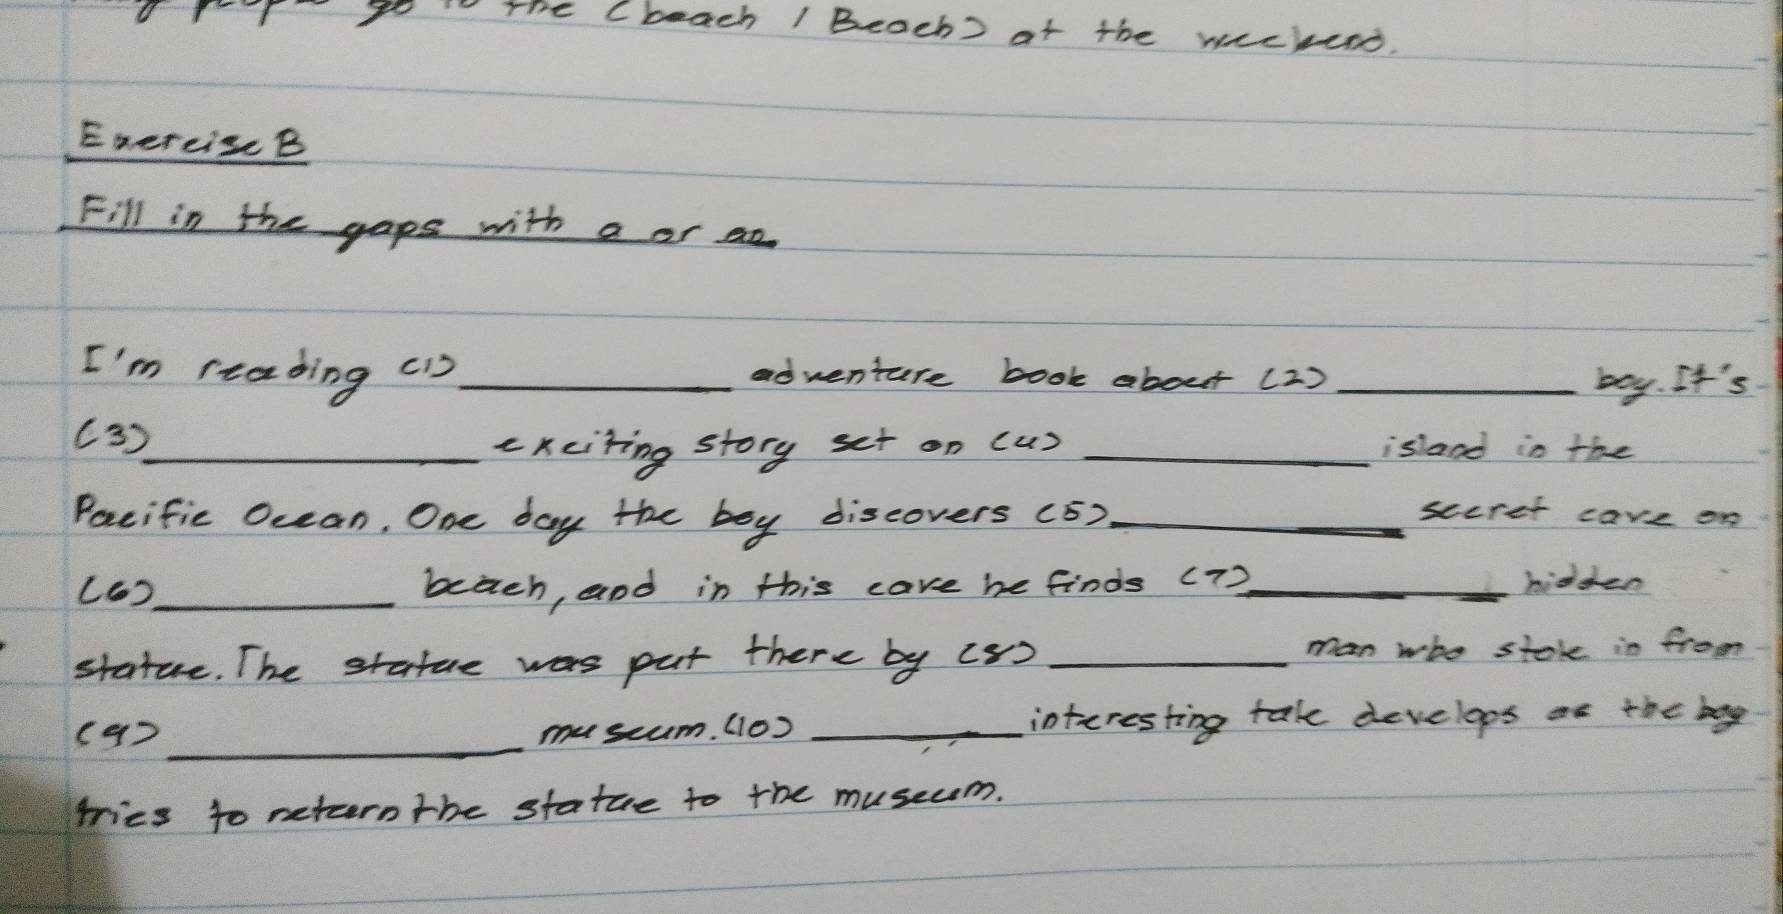 people go to the (beach / Beach) at the weekend.
Exercise B
Fill in the gaps with a or an.
I'm reading (1)__________ adventure book about (2)__________ boy. It's
(3)__________ exciting story set on (4)__________ island in the
Pacific Ocean. One day the boy discovers (5)__________ secret cave on
(6)__________ beach, and in this cave he finds (7)__________ hidden
statue. The statue was put there by (8)__________ man who stole in from
(9)__________ museum. (10)__________ interesting tale develops as the boy
tries to return the statue to the museum.